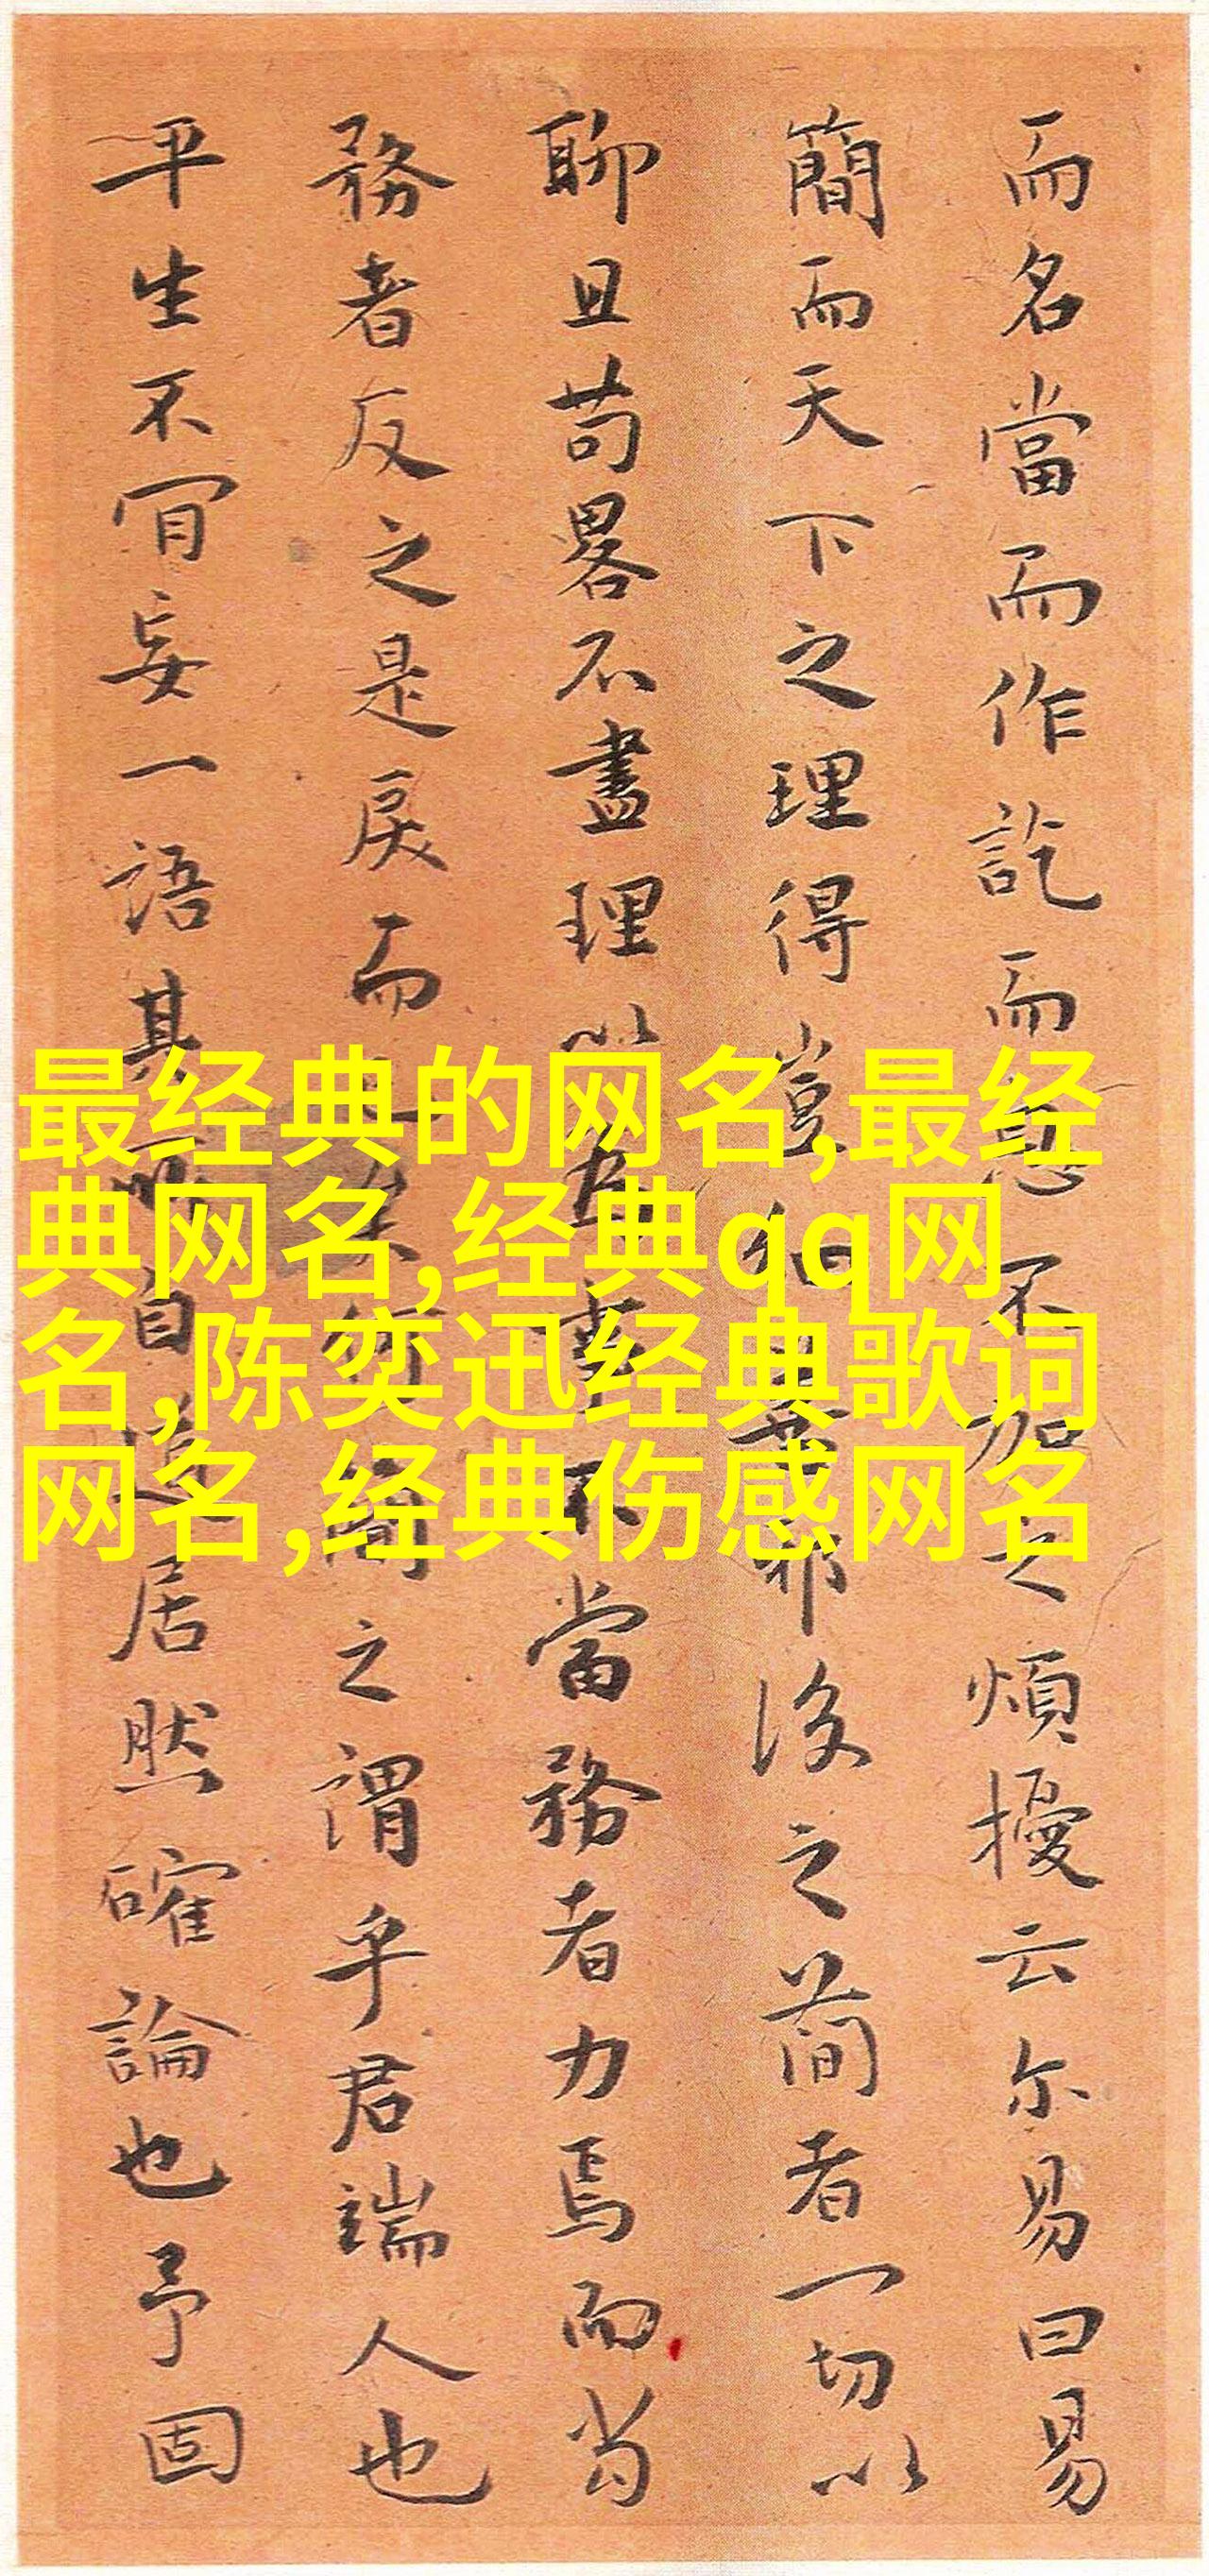 而名當而作訖而不加之煩擾云尔易曰易
簡而天下之理得豈細事耶後之简者一切以
聊且苟畧不盡理以不當務者力焉而當
務者反之是戾而已矣何簡之謂乎君端人也
平生不肎妄一語其所自道居然確論也予固
最经典的网名,最经
典网名,经典qq网
名,陈奕迅经典歌词
网名,经典伤感网名